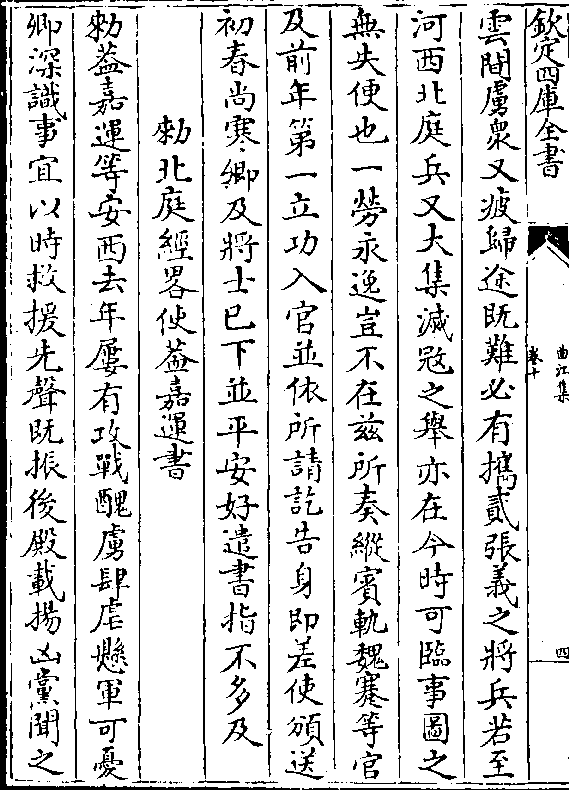 欽定四庫全書
曲江集
卷十
四
雲間虜衆又疲歸途旣難必有攜貳張義之將兵若至
河西北庭兵又大集滅寇之舉亦在今時可臨事圖之
無失便也一勞永逸豈不在兹所奏縱賓軌魏蹇等官
及前年第一立功入官並依所請訖告身即差使頒送
初春尚寒卿及將士已下並平安好遣書指不多及
勑北庭經畧使葢嘉運書
勑葢嘉運等安西去年屢有攻戰醜虜肆虐懸軍可憂
卿深識事宜以時救援先聲旣振後殿載揚凶黨聞之